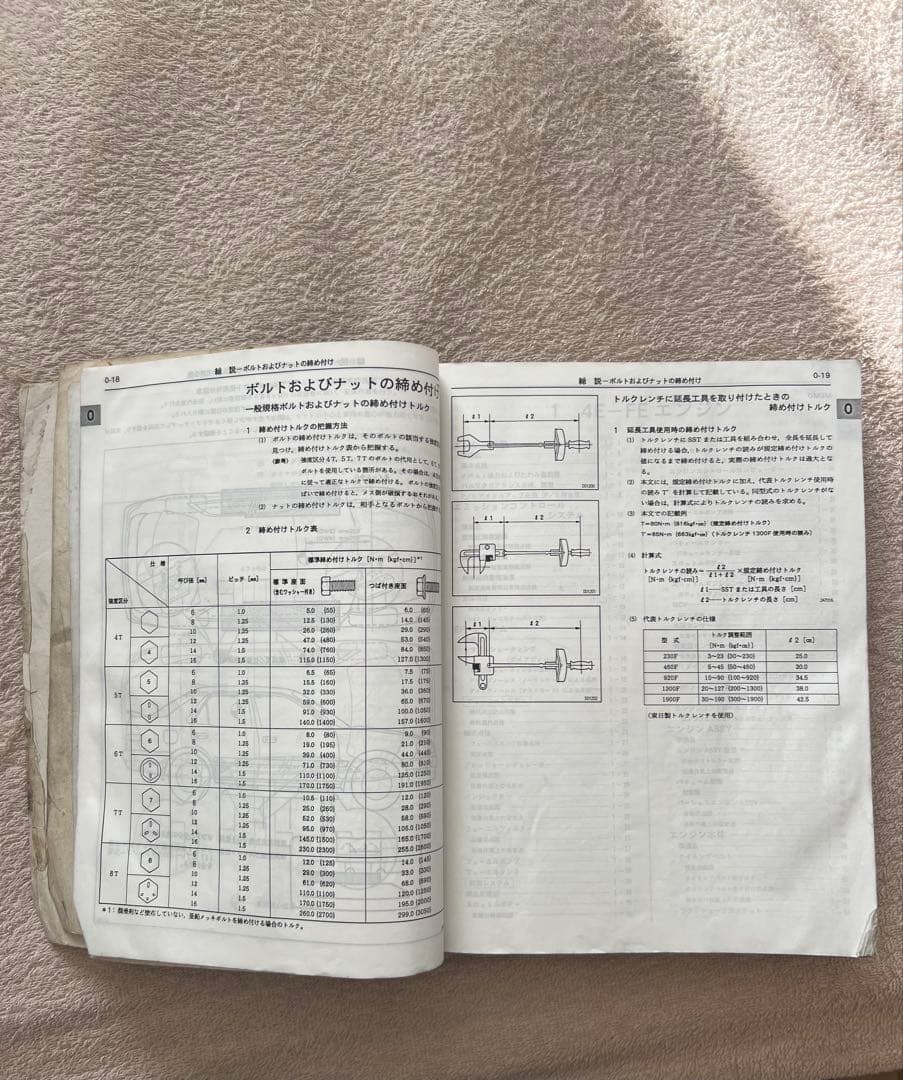 0-18
総 説－ボルトおよびナットの締め付け
0
ボルトおよびナットの締め付け
一般規格ボルトおよびナットの締め付けトルク
1 締め付けトルクの把握方法
(1) ボルトの締め付けトルクは、そのボルトの該当する強度
見つけ，締め付けトルク表から把握する。
(参考) 強度区分4T，5T，7Tのボルトの代用として，
ボルトを使用している箇所がある。その場合は，
に従って適正なトルクで締め付ける。ボルトの強度
ぱいで締め付けると，メス側が破損するおそれが
(2) ナットの締め付けトルクは，相手となるボルトから把握
2 締め付けトルク表
仕 様
強度区分
呼び径［㎜］
ピッチ［㎜］
標準締め付けトルク［N･m {kgf･cm}］*1
標 準 座 面
(含むワッシャー付き)
つば付き座面
4T
6 1.0 5.0 {55} 6.0 {65}
8 1.25 12.5 {130} 14.0 {145}
10 1.25 26.0 {260} 29.0 {290}
12 1.25 47.0 {480} 53.0 {540}
14 1.5 74.0 {760} 84.0 {850}
16 1.5 115.0 {1150} 127.0 {1300}
4
5T
6 1.0 6.5 {65} 7.5 {75}
8 1.25 15.5 {160} 17.5 {175}
10 1.25 32.0 {330} 36.0 {360}
12 1.25 59.0 {600} 65.0 {670}
14 1.5 91.0 {930} 100.0 {1050}
16 1.5 140.0 {1400} 157.0 {1600}
5
6T
6 1.0 8.0 {80} 9.0 {90}
8 1.25 19.0 {195} 21.0 {210}
10 1.25 39.0 {400} 44.0 {440}
12 1.25 71.0 {730} 80.0 {810}
14 1.5 110.0 {1100} 125.0 {1250}
16 1.5 170.0 {1750} 191.0 {1950}
6
7T
6 1.0 10.5 {110} 12.0 {120}
8 1.25 25.0 {260} 28.0 {290}
10 1.25 52.0 {530} 58.0 {590}
12 1.25 95.0 {970} 105.0 {1050}
14 1.5 145.0 {1500} 165.0 {1700}
16 1.5 230.0 {2300} 255.0 {2600}
7
8T
6 1.0 12.0 {125} 14.0 {145}
8 1.25 29.0 {300} 33.0 {330}
10 1.25 61.0 {620} 68.0 {690}
12 1.25 110.0 {1100} 120.0 {1250}
14 1.5 170.0 {1750} 195.0 {2000}
16 1.5 260.0 {2700} 299.0 {3050}
8
＊1：潤滑剤など塗布していない，亜鉛メッキボルトを締め付ける場合のトルク。
総 説－ボルトおよびナットの締め付け
0-19
0
ℓ1 ℓ2
ℓ1 ℓ2
ℓ1 ℓ2
トルクレンチに延長工具を取り付けたときの
締め付けトルク
1 延長工具使用時の締め付けトルク
(1) トルクレンチにSSTまたは工具を組み合わせ，全長を延長して
締め付ける場合，トルクレンチの読みが規定締め付けトルクの
値になるまで締め付けると，実際の締め付けトルクは過大とな
る。
(2) 本文には，規定締め付けトルクに加え，代表トルクレンチ使用時
の読みT′を計算して記載している。同型式のトルクレンチがな
い場合は，計算式によりトルクレンチの読みを求める。
(3) 本文での記載例
T＝80N･m {816kgf･cm}（規定締め付けトルク）
T′＝65N･m {663kgf･cm}（トルクレンチ1300F使用時の読み）
(4) 計算式
トルクレンチの読み＝ℓ2/ℓ1＋ℓ2×規定締め付けトルク
［N･m {kgf･cm}］ ［N･m {kgf･cm}］
ℓ1──SSTまたは工具の長さ［cm］
ℓ2──トルクレンチの長さ［cm］
(5) 代表トルクレンチの仕様
型 式 トルク調整範囲［N･m {kgf･cm}］ ℓ2［㎝］
230F 3～23 {30～230} 25.0
450F 5～45 {50～450} 30.0
920F 10～90 {100～920} 34.5
1300F 20～127 {200～1300} 38.0
1900F 30～190 {300～1900} 42.5
（東日製トルクレンチを使用）
1 4E-FE エンジン